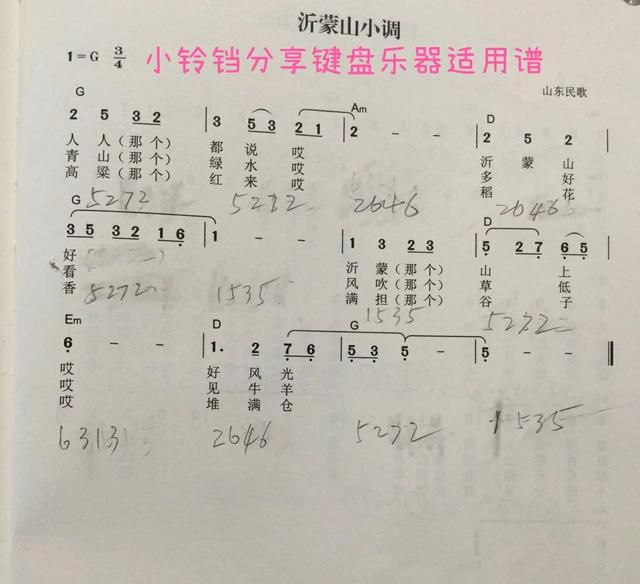 沂蒙山小调
1=G 3/4 小铃铛分享键盘乐器适用谱
山东民歌
G Am D
2 5 3 2 | 3 5 3 2 1 | 2 - - | 2 5 2 |
人 人(那 个) 都 说 哎 沂 蒙 山
青 山(那 个) 绿 水 哎 多 好
高 粱(那 个) 红 来 哎 稻 花
5272 5272 2646 2646
G D
3 5 3 2 1 6 | 1 - - | 1 3 2 3 | 5 2 7 6 5 |
好 沂 蒙(那 个) 山 上
看 风 吹(那 个) 草 低
香 满 担(那 个) 谷 子
5272 1535 1535 5272
Em D G
6 - - | 1. 2 7 6 | 5 3 5 - | 5 - - ‖
哎 好 风 光
哎 见 牛 羊
哎 堆 满 仓
63131 2646 5272 1535